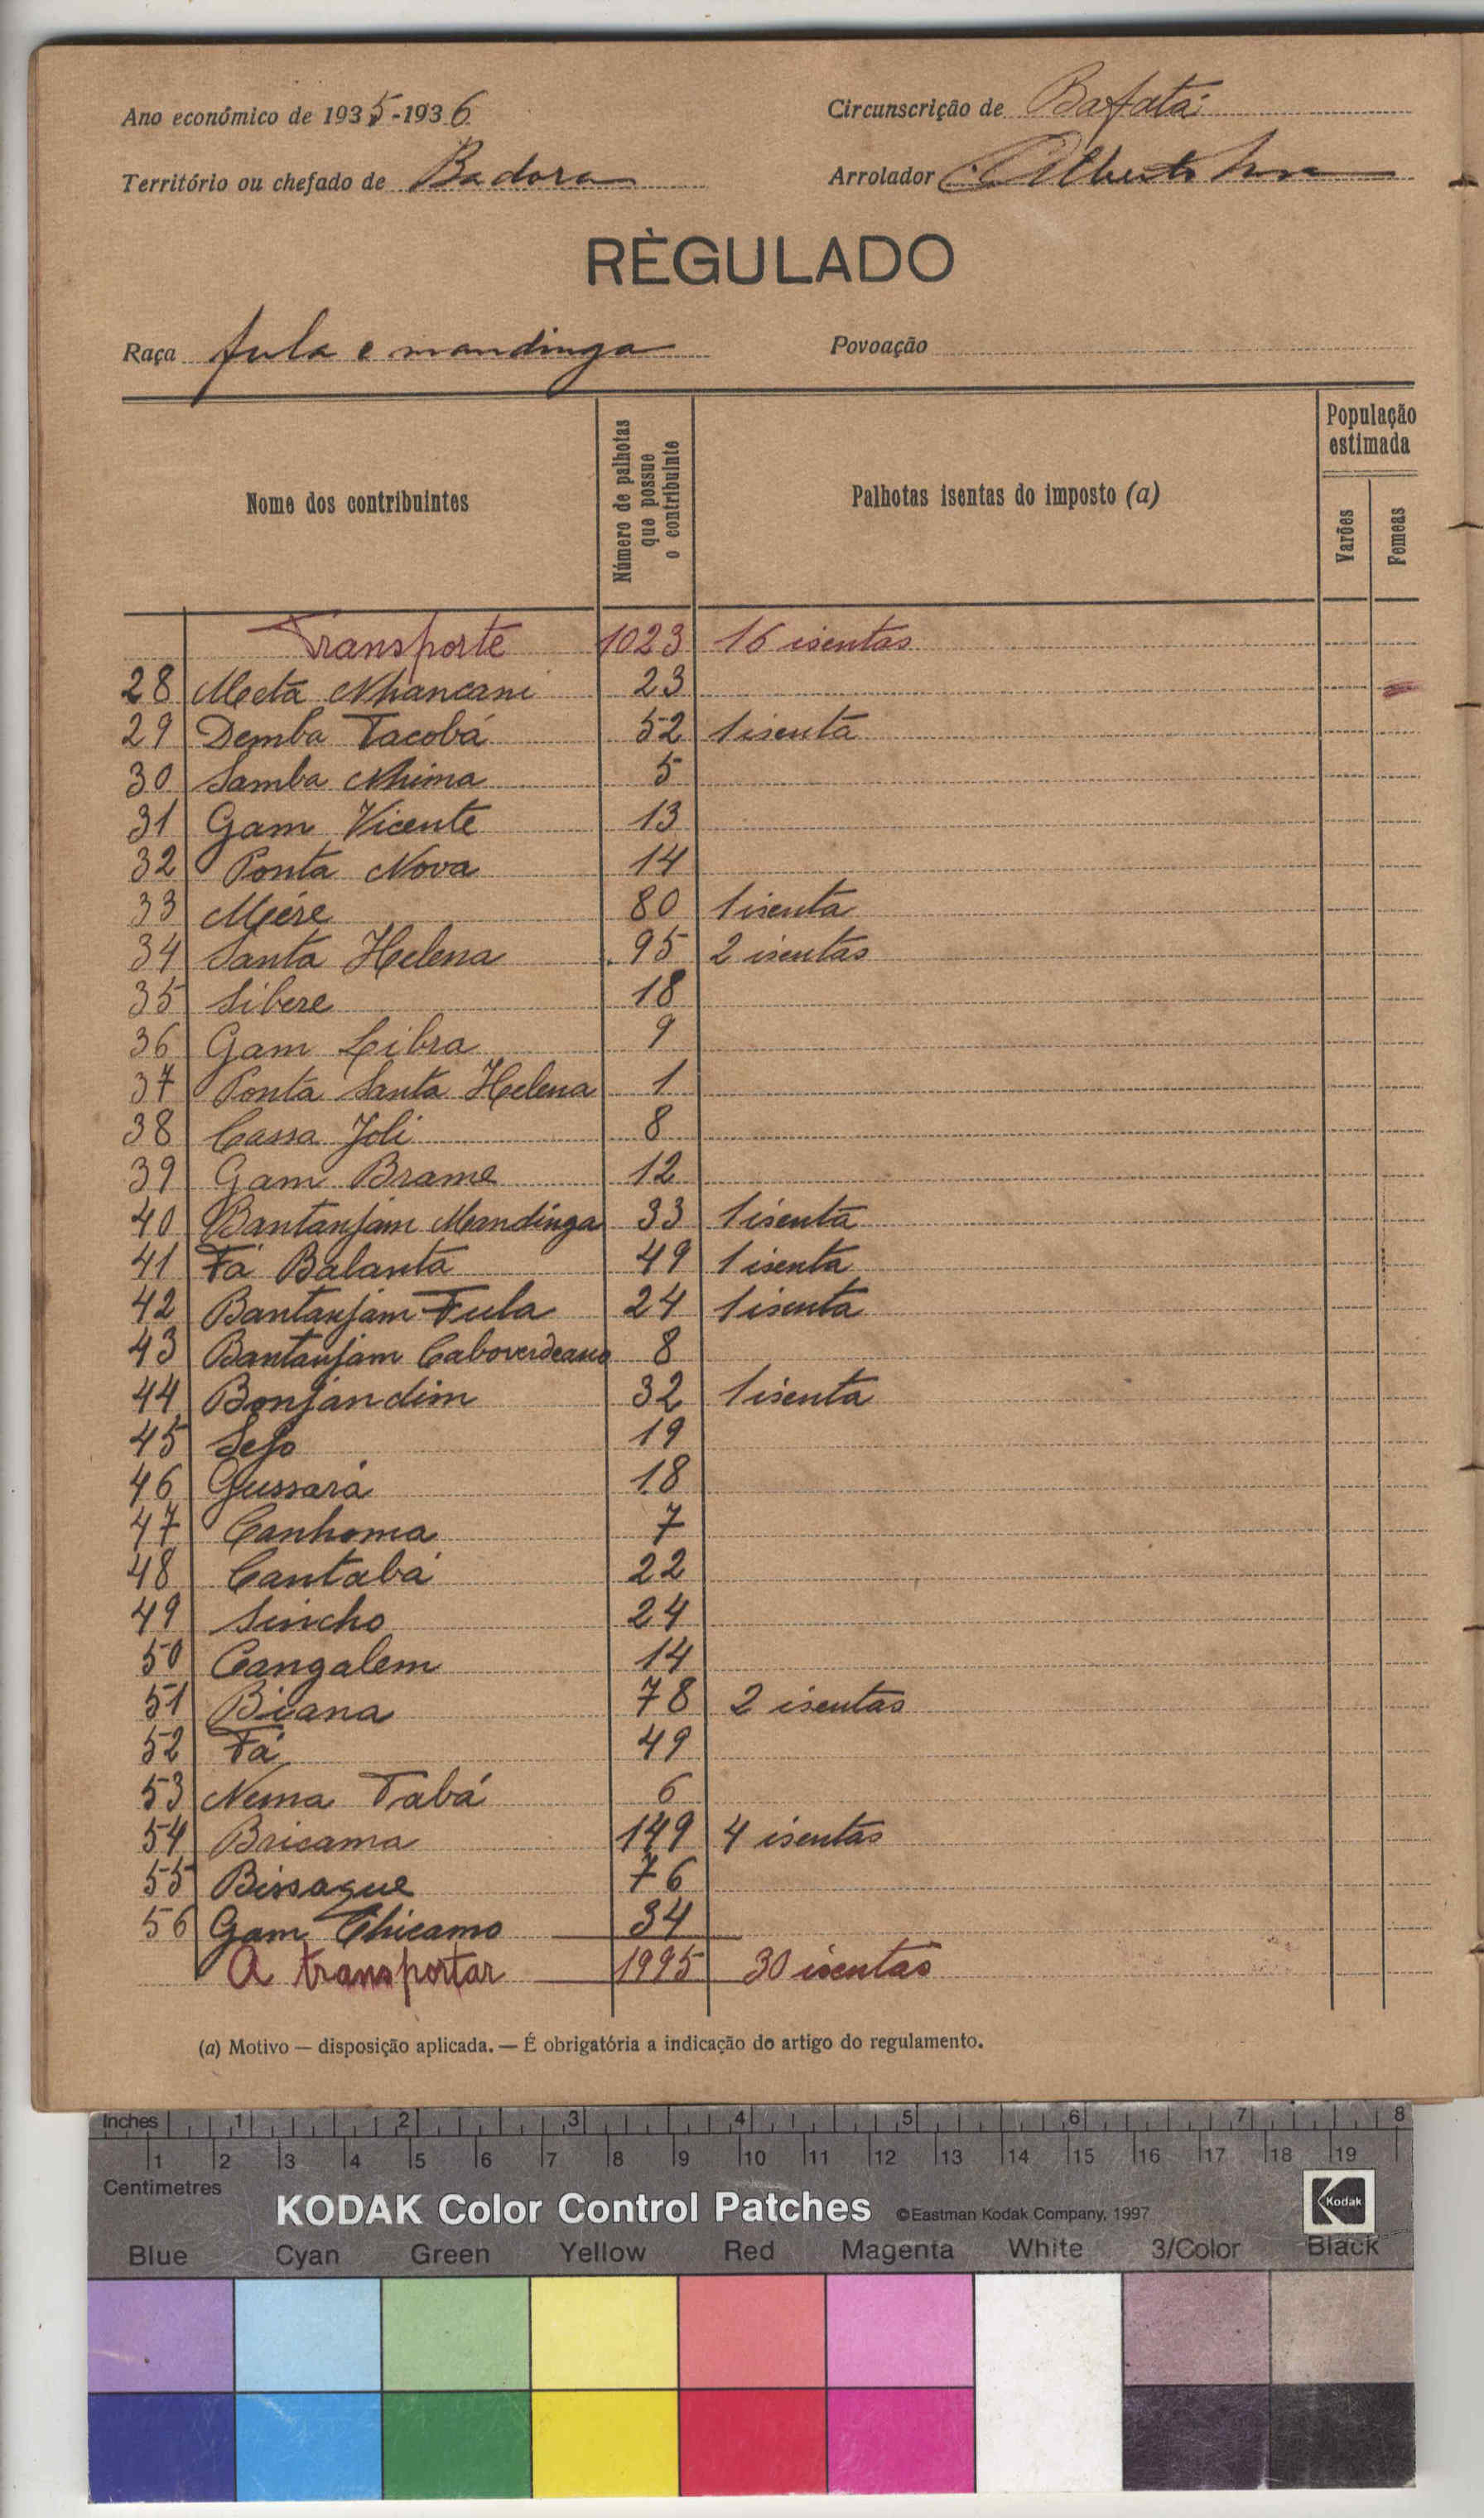 Ano económico de 1935-1936
Circunscrição de Bafatá
Território ou chefado de Badora
Arrolador Alberto
RÈGULADO
Raça fula e mandinga
Povoação
Nome dos contribuintes
Número de palhotas que possue o contribuinte
Palhotas isentas do imposto (a)
População estimada
Varões
Femeas
Transporte 1023 16 isentas
28 Metá Nhancani 23
29 Demba Tacobá 52 1 isenta
30 Samba Nhima 5
31 Gam Vicente 13
32 Ponta Nova 14
33 Miére 80 1 isenta
34 Santa Helena 95 2 isentas
35 Sibere 18
36 Gam Libra 9
37 Ponta Santa Helena 1
38 Cassa Joli 8
39 Gam Brame 12
40 Bantanjam Mandinga 33 1 isenta
41 Fá Balanta 49 1 isenta
42 Bantanjam Fula 24 1 isenta
43 Bantanjam Caboverdeano 8
44 Bonjandim 32 1 isenta
45 Sefo 19
46 Gussará 18
47 Canhoma 7
48 Cantabá 22
49 Sincho 24
50 Cangalem 14
51 Biana 78 2 isentas
52 Fá 49
53 Nema Tabá 6
54 Bricama 149 4 isentas
55 Bissaque 76
56 Gam Chicamo 34
A transportar 1995 30 isentas
(a) Motivo — disposição aplicada. — É obrigatória a indicação do artigo do regulamento.
Inches 1 2 3 4 5 6 7 8
1 2 3 4 5 6 7 8 9 10 11 12 13 14 15 16 17 18 19
Centimetres
KODAK Color Control Patches ©Eastman Kodak Company, 1997 Kodak
Blue Cyan Green Yellow Red Magenta White 3/Color Black